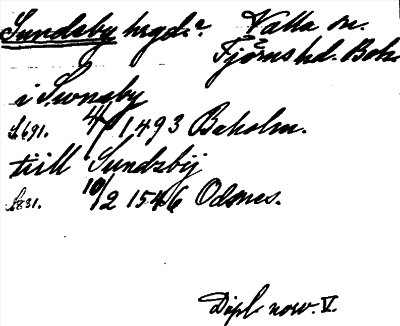 Sundsby hrgd? Valla sn.
Tjörns hd. Boh.
i Swnsby
s. 691. 4/1 1493 Baholm.
till Sundzbij
s. 831. 10/2 1546 Odsnes.
Dipl. norv. V.